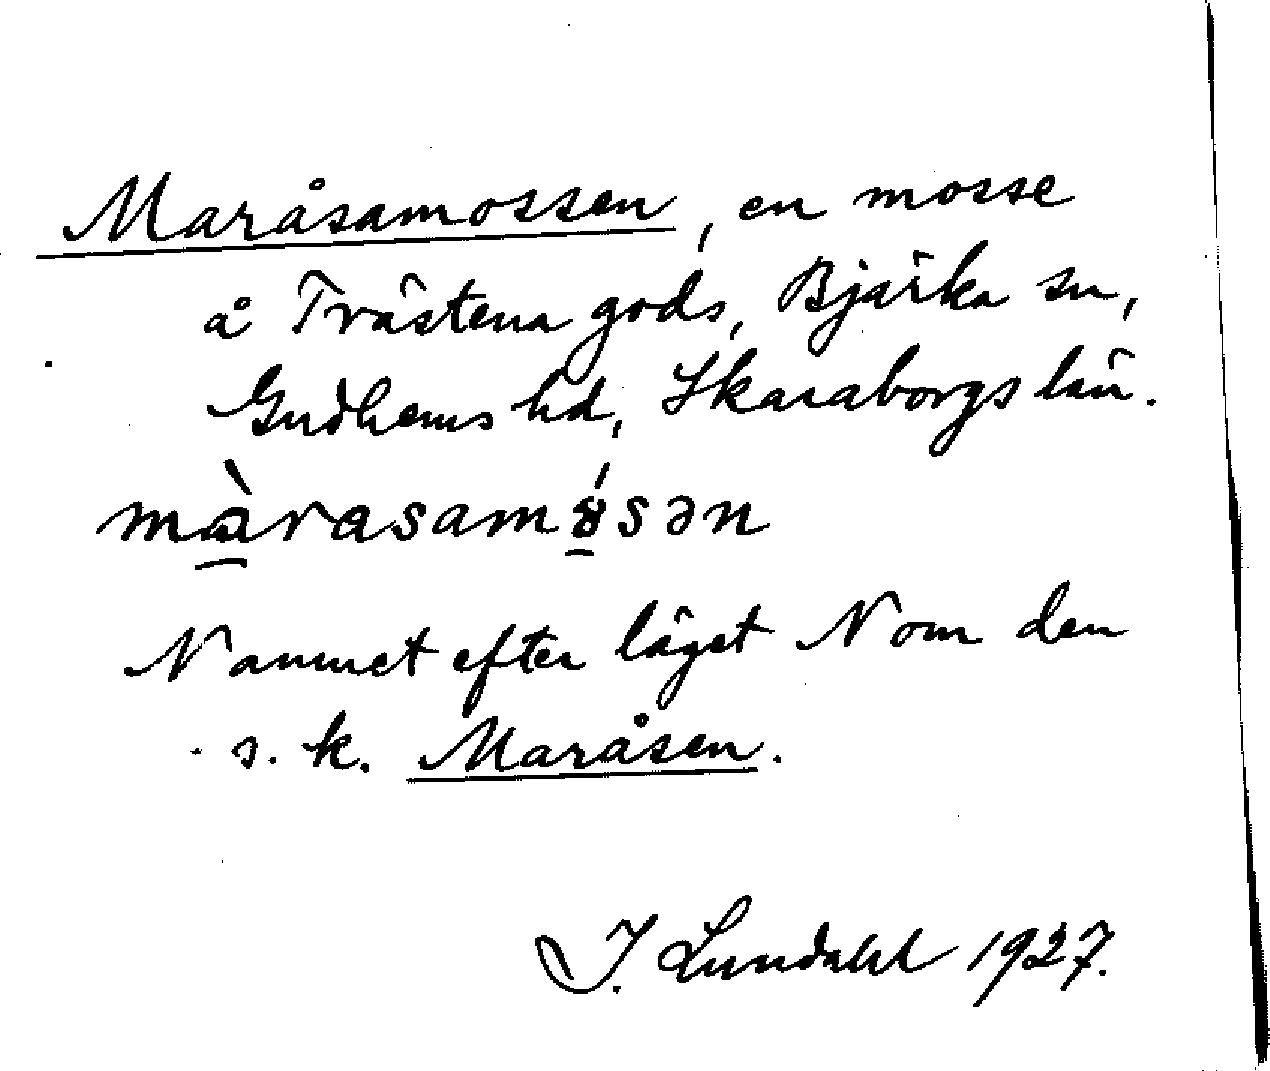 Maråsamossen, en mosse
å Trästena gods, Bjärka sn,
Gudhems hd, Skaraborgs län.
màrasamɤ́sən
Namnet efter läget N om den
s. k. Maråsen.
I. Lundahl 1927.